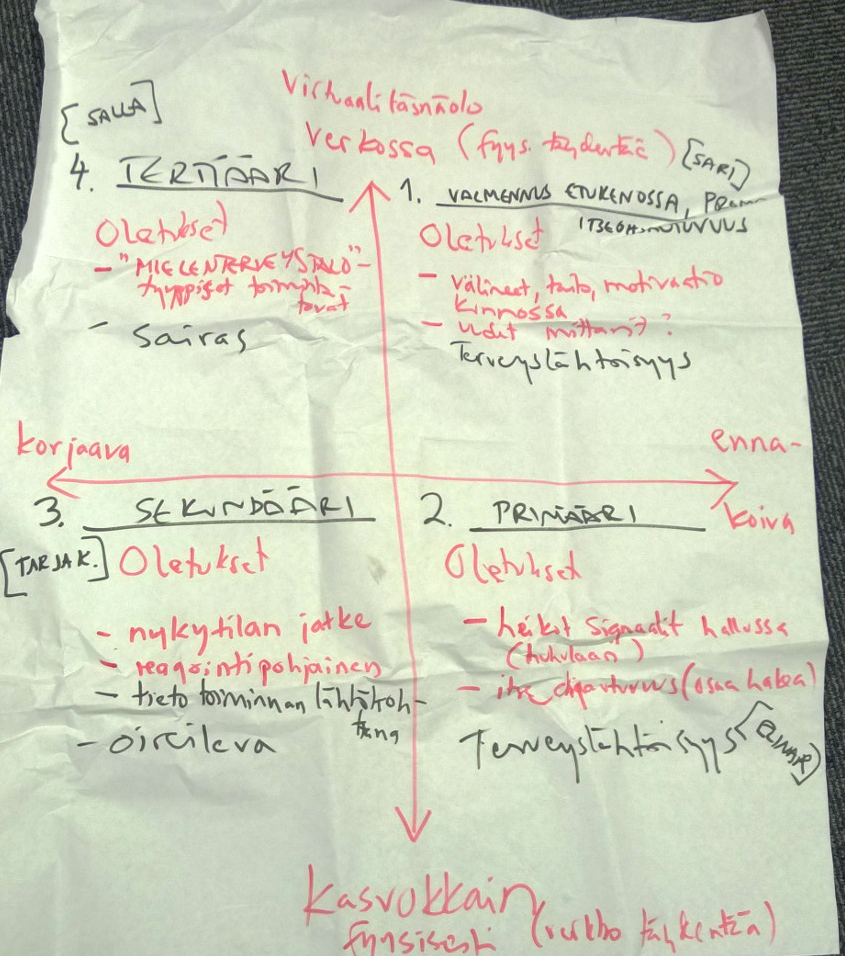 Virtuaalitäsnäolo
verkossa (fyys. täydentää)
[SALLA]
[SARI]
4. TERTIÄÄRI
Oletukset
- "MIELENTERVEYSTALO"-
tyyppiset toiminta-
tavat
- Sairas
1. VALMENNUS ETUKENOSSA,
Oletukset
- välineet, taito, motivaatio
kunnossa
- uudet mittarit?
Terveyslähtöisyys
korjaava
enna-
koiva
3. SEKUNDÄÄRI
[TARJA K.]
Oletukset
- nykytilan jatke
- reagointipohjainen
- tieto toiminnan lähtökoh-
tana
- oireileva
2. PRIMÄÄRI
Oletukset
- heikot signaalit hallussa
(huhuillaan)
- itse (osaa hakea)
Terveyslähtöisyys
Kasvokkain
fyysisesti (verkko täydentää)